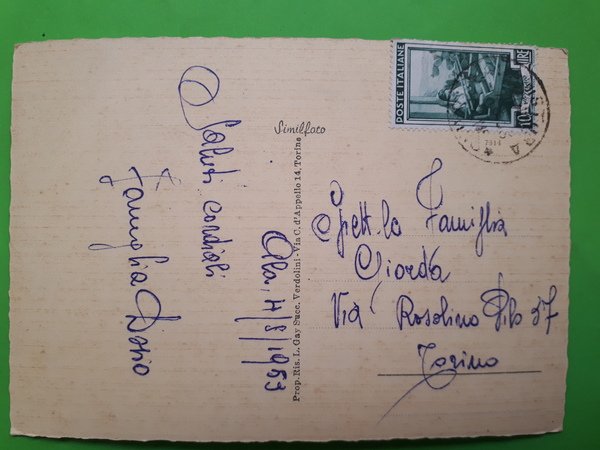 Saluti cordiali
Ala, 14/8/1953
Similfoto
Prop. Ris. L. Gay Succ. Verdolini - Via C. d'Appello 14, Torino
POSTE ITALIANE
LIRE
10
Spett.le Famiglia
Giorda
Via Rosolino Pilo 57
Torino